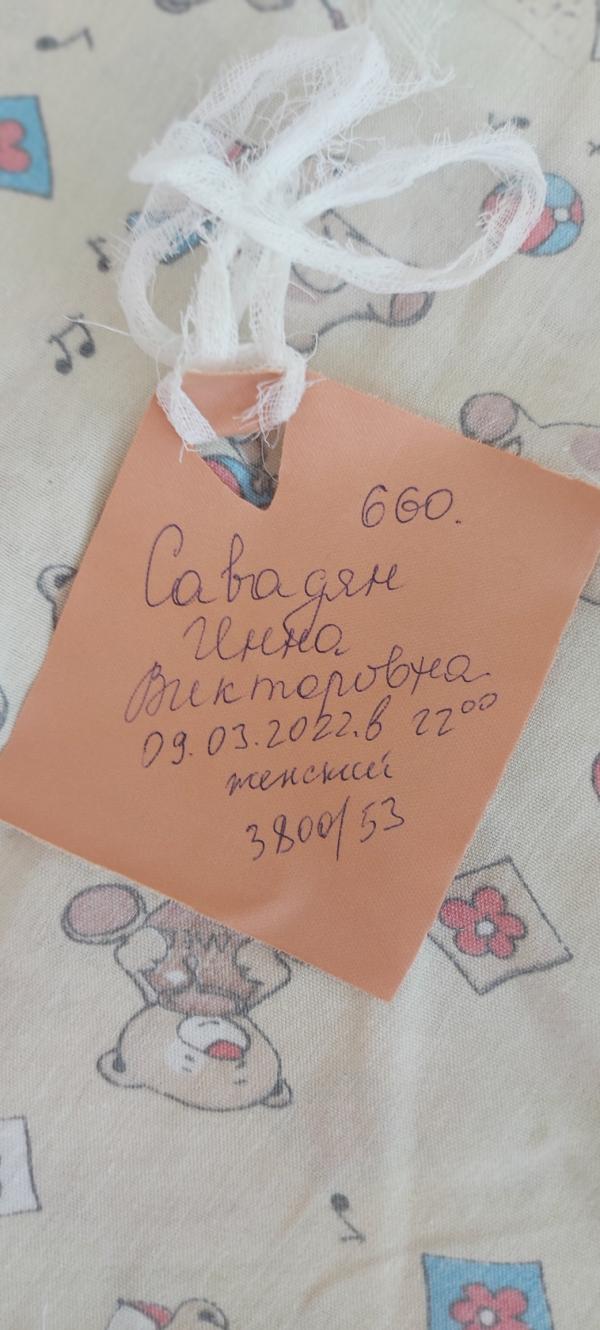 660.
Савадян
Инна
Викторовна
09.03.2022.в 22⁰⁰
женский
3800/53